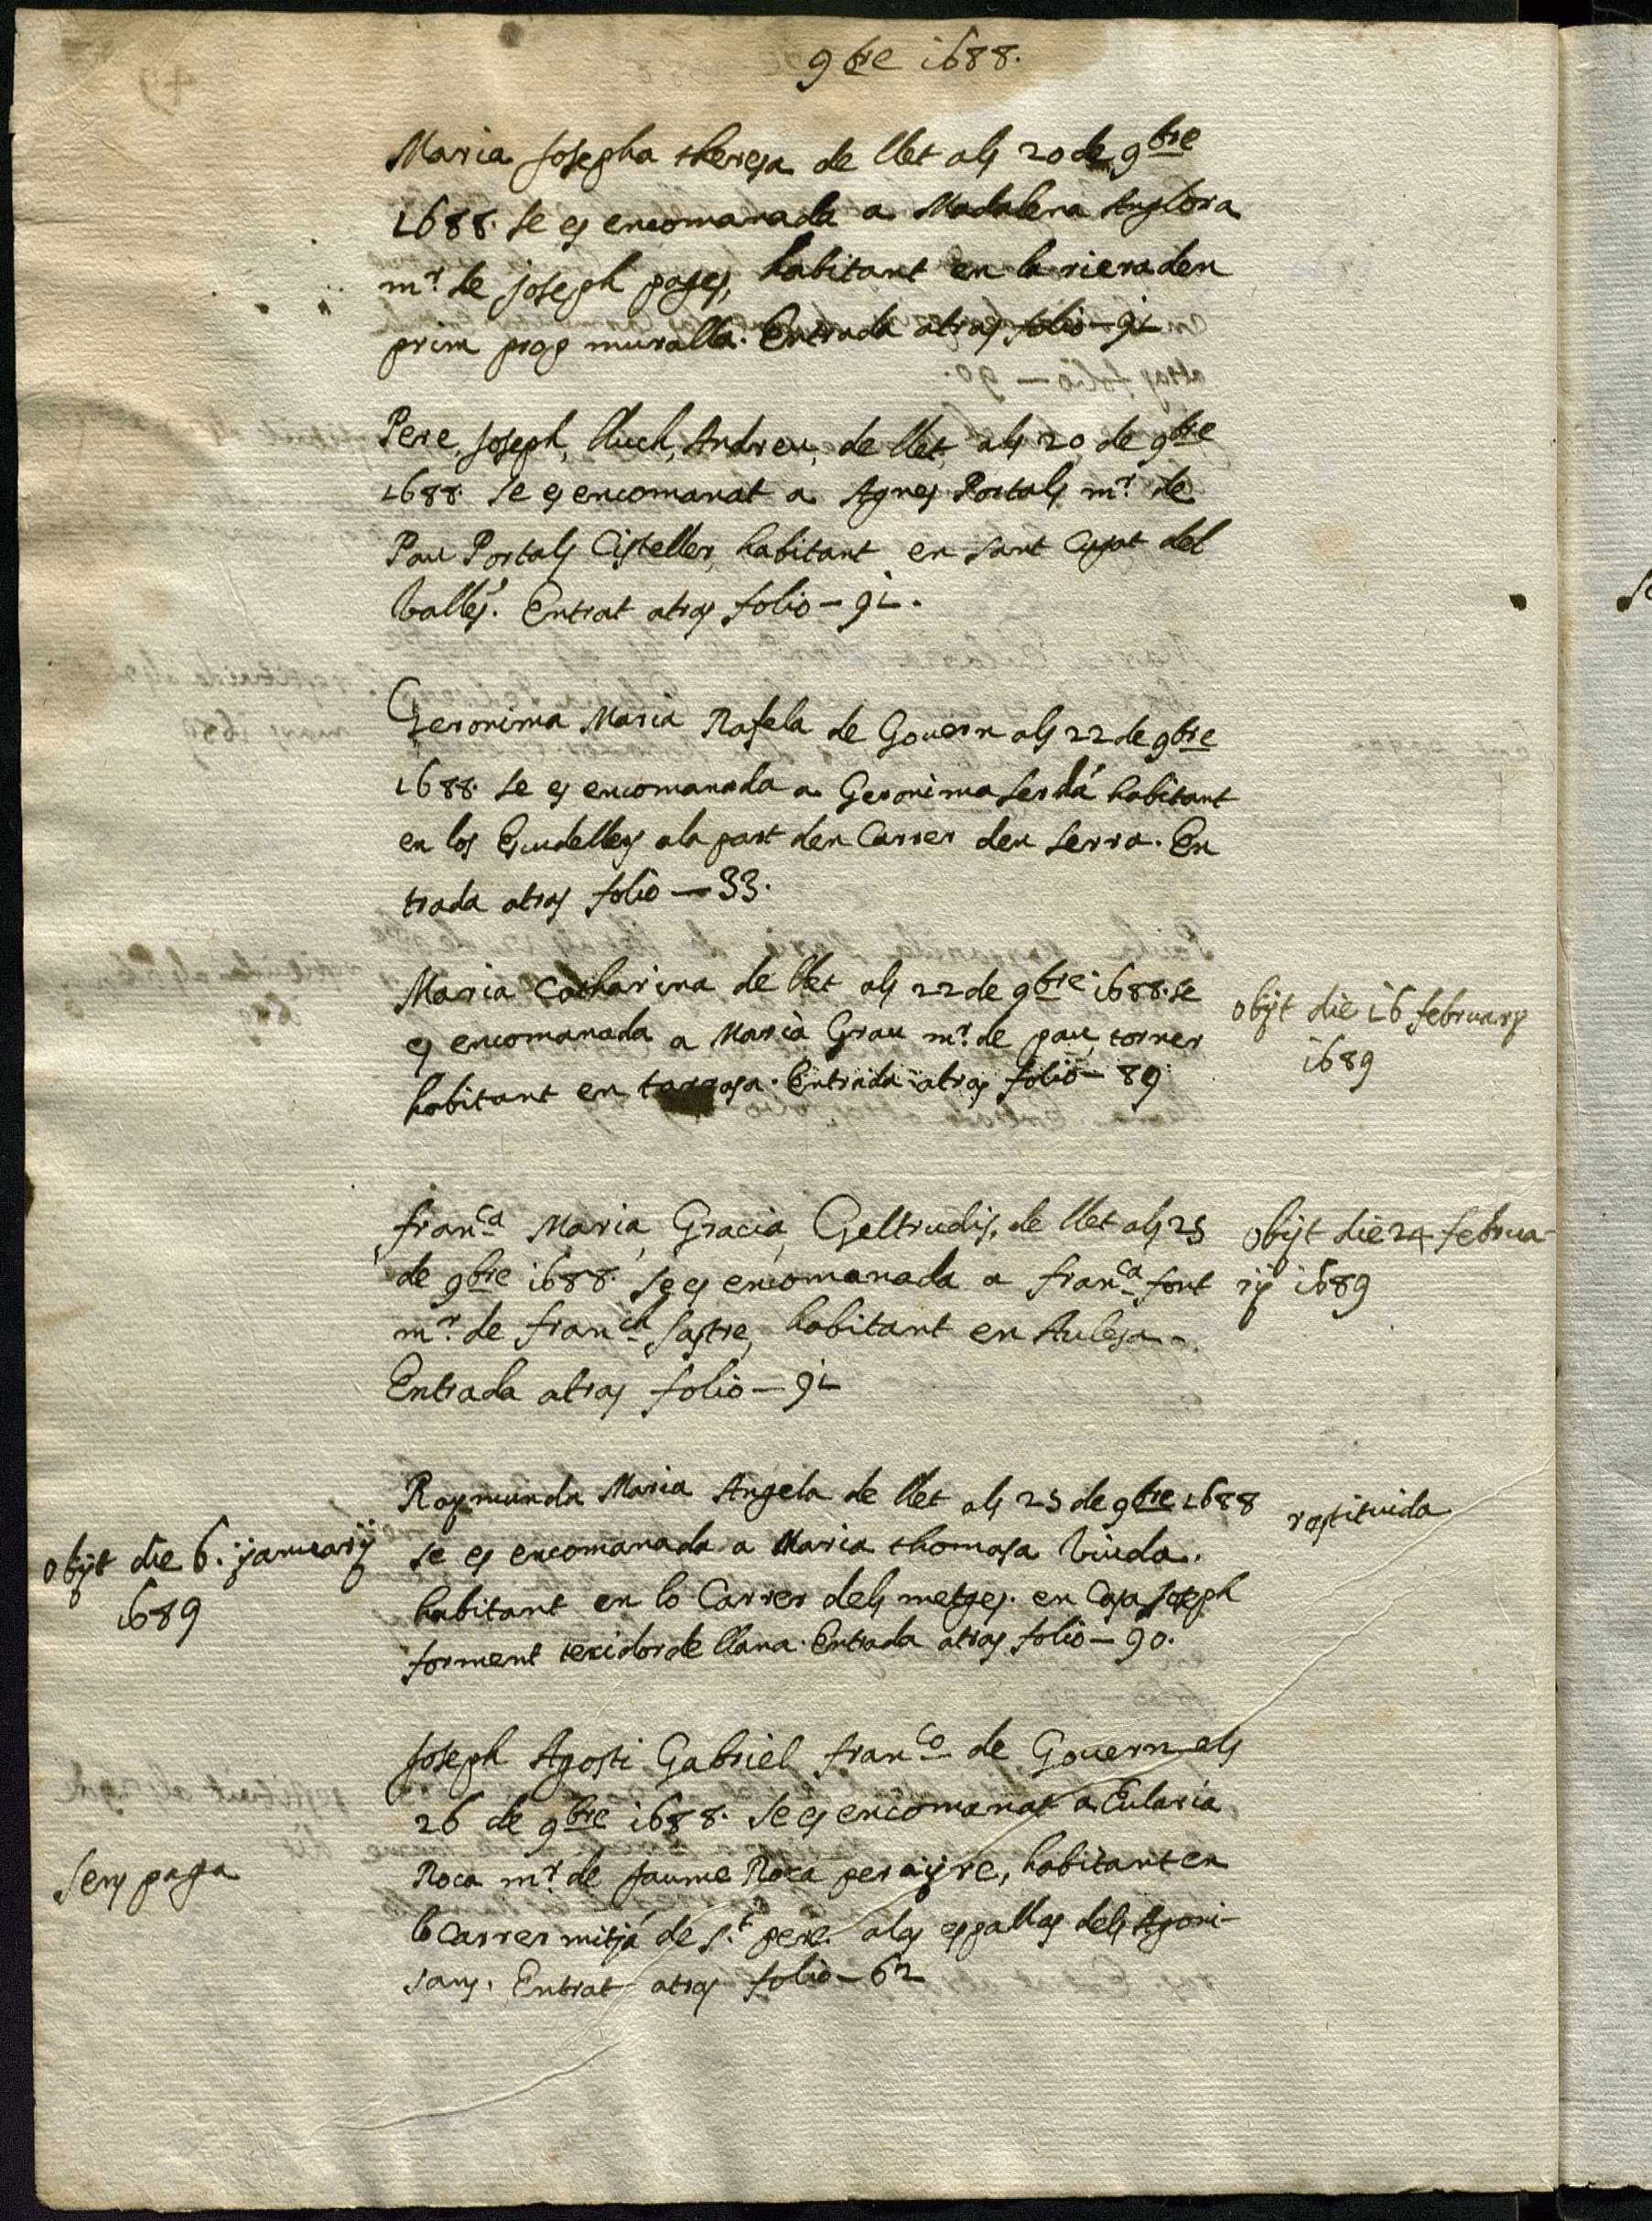 9bre 1688.
Maria Josepha theresa de llet als 20 de 9bre
1688. se es encomanada a Madalena Anglora
mr. de joseph pages, habitant en la riera den
prim prop muralla. Entrada atras folio — 91
Pere, Joseph, lluch, Andreu, de llet, als 20 de 9bre
1688. se es encomanat a Agnes Portals mr. de
Pau Portals Cisteller, habitant en sant Cugat del
Valles. Entrat atras folio — 91.
Geronima Maria Rafela de Govern als 22 de 9bre
1688. se es encomanada a Geronima Serdá habitant
en los Escudellers a la part den Carrer den Serra. En
trada atras folio — 33.
Maria Catharina de llet als 22 de 9bre 1688. se
es encomanada a Maria Grau mr. de pau, torner
habitant en tarrasa. Entrada atras folio — 89
obijt die 16 februarij
1689
franca Maria, Gracia, Geltrudis, de llet als 25
de 9bre 1688. se es encomanada a franca font
mr. de franch sastre, habitant en Aulesa.
Entrada atras folio — 91
obijt die 24 februa-
rij 1689
Raymunda Maria Angela de llet als 25 de 9bre 1688
se es encomanada a Maria thomasa Viuda.
habitant en lo Carrer dels metges. en Casa Joseph
forment texidor de llana. Entrada atras folio — 90.
restituida
obijt die 6. januarij
1689
Joseph Agosti Gabriel franco de Govern als
26 de 9bre 1688. se es encomanat a Eularia
Roca mr. de Jaume Roca perayre, habitant en
lo carrer mitjá de St. pere. a las espallas dels Agoni-
sans. Entrat atras folio — 62
sens paga